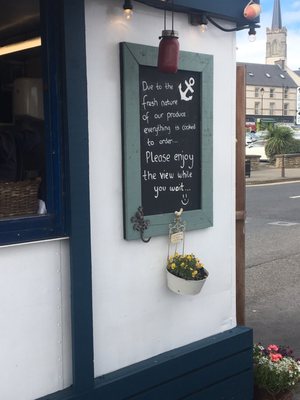 Due to the
fresh nature
of our produce
everything is cooked
to order...
Please enjoy
the view while
you wait...